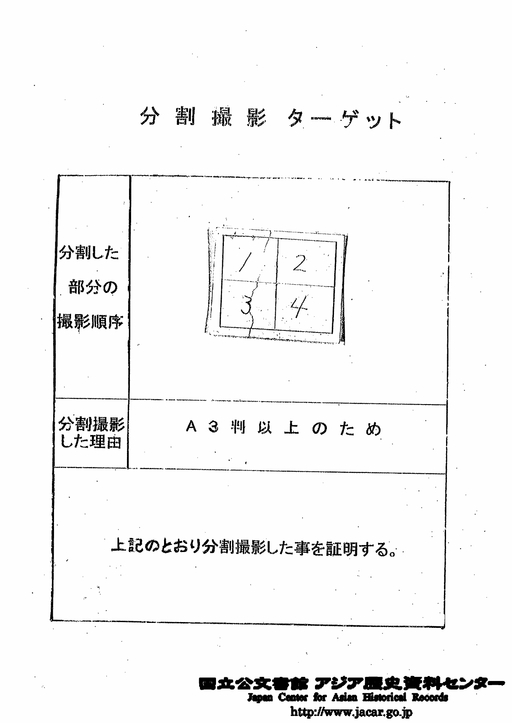 分割撮影ターゲット
分割した
部分の
撮影順序
1 2
3 4
分割撮影
した理由
A3判以上のため
上記のとおり分割撮影した事を証明する。
国立公文書館 アジア歴史資料センター
Japan Center for Asian Historical Records
http://www.jacar.go.jp